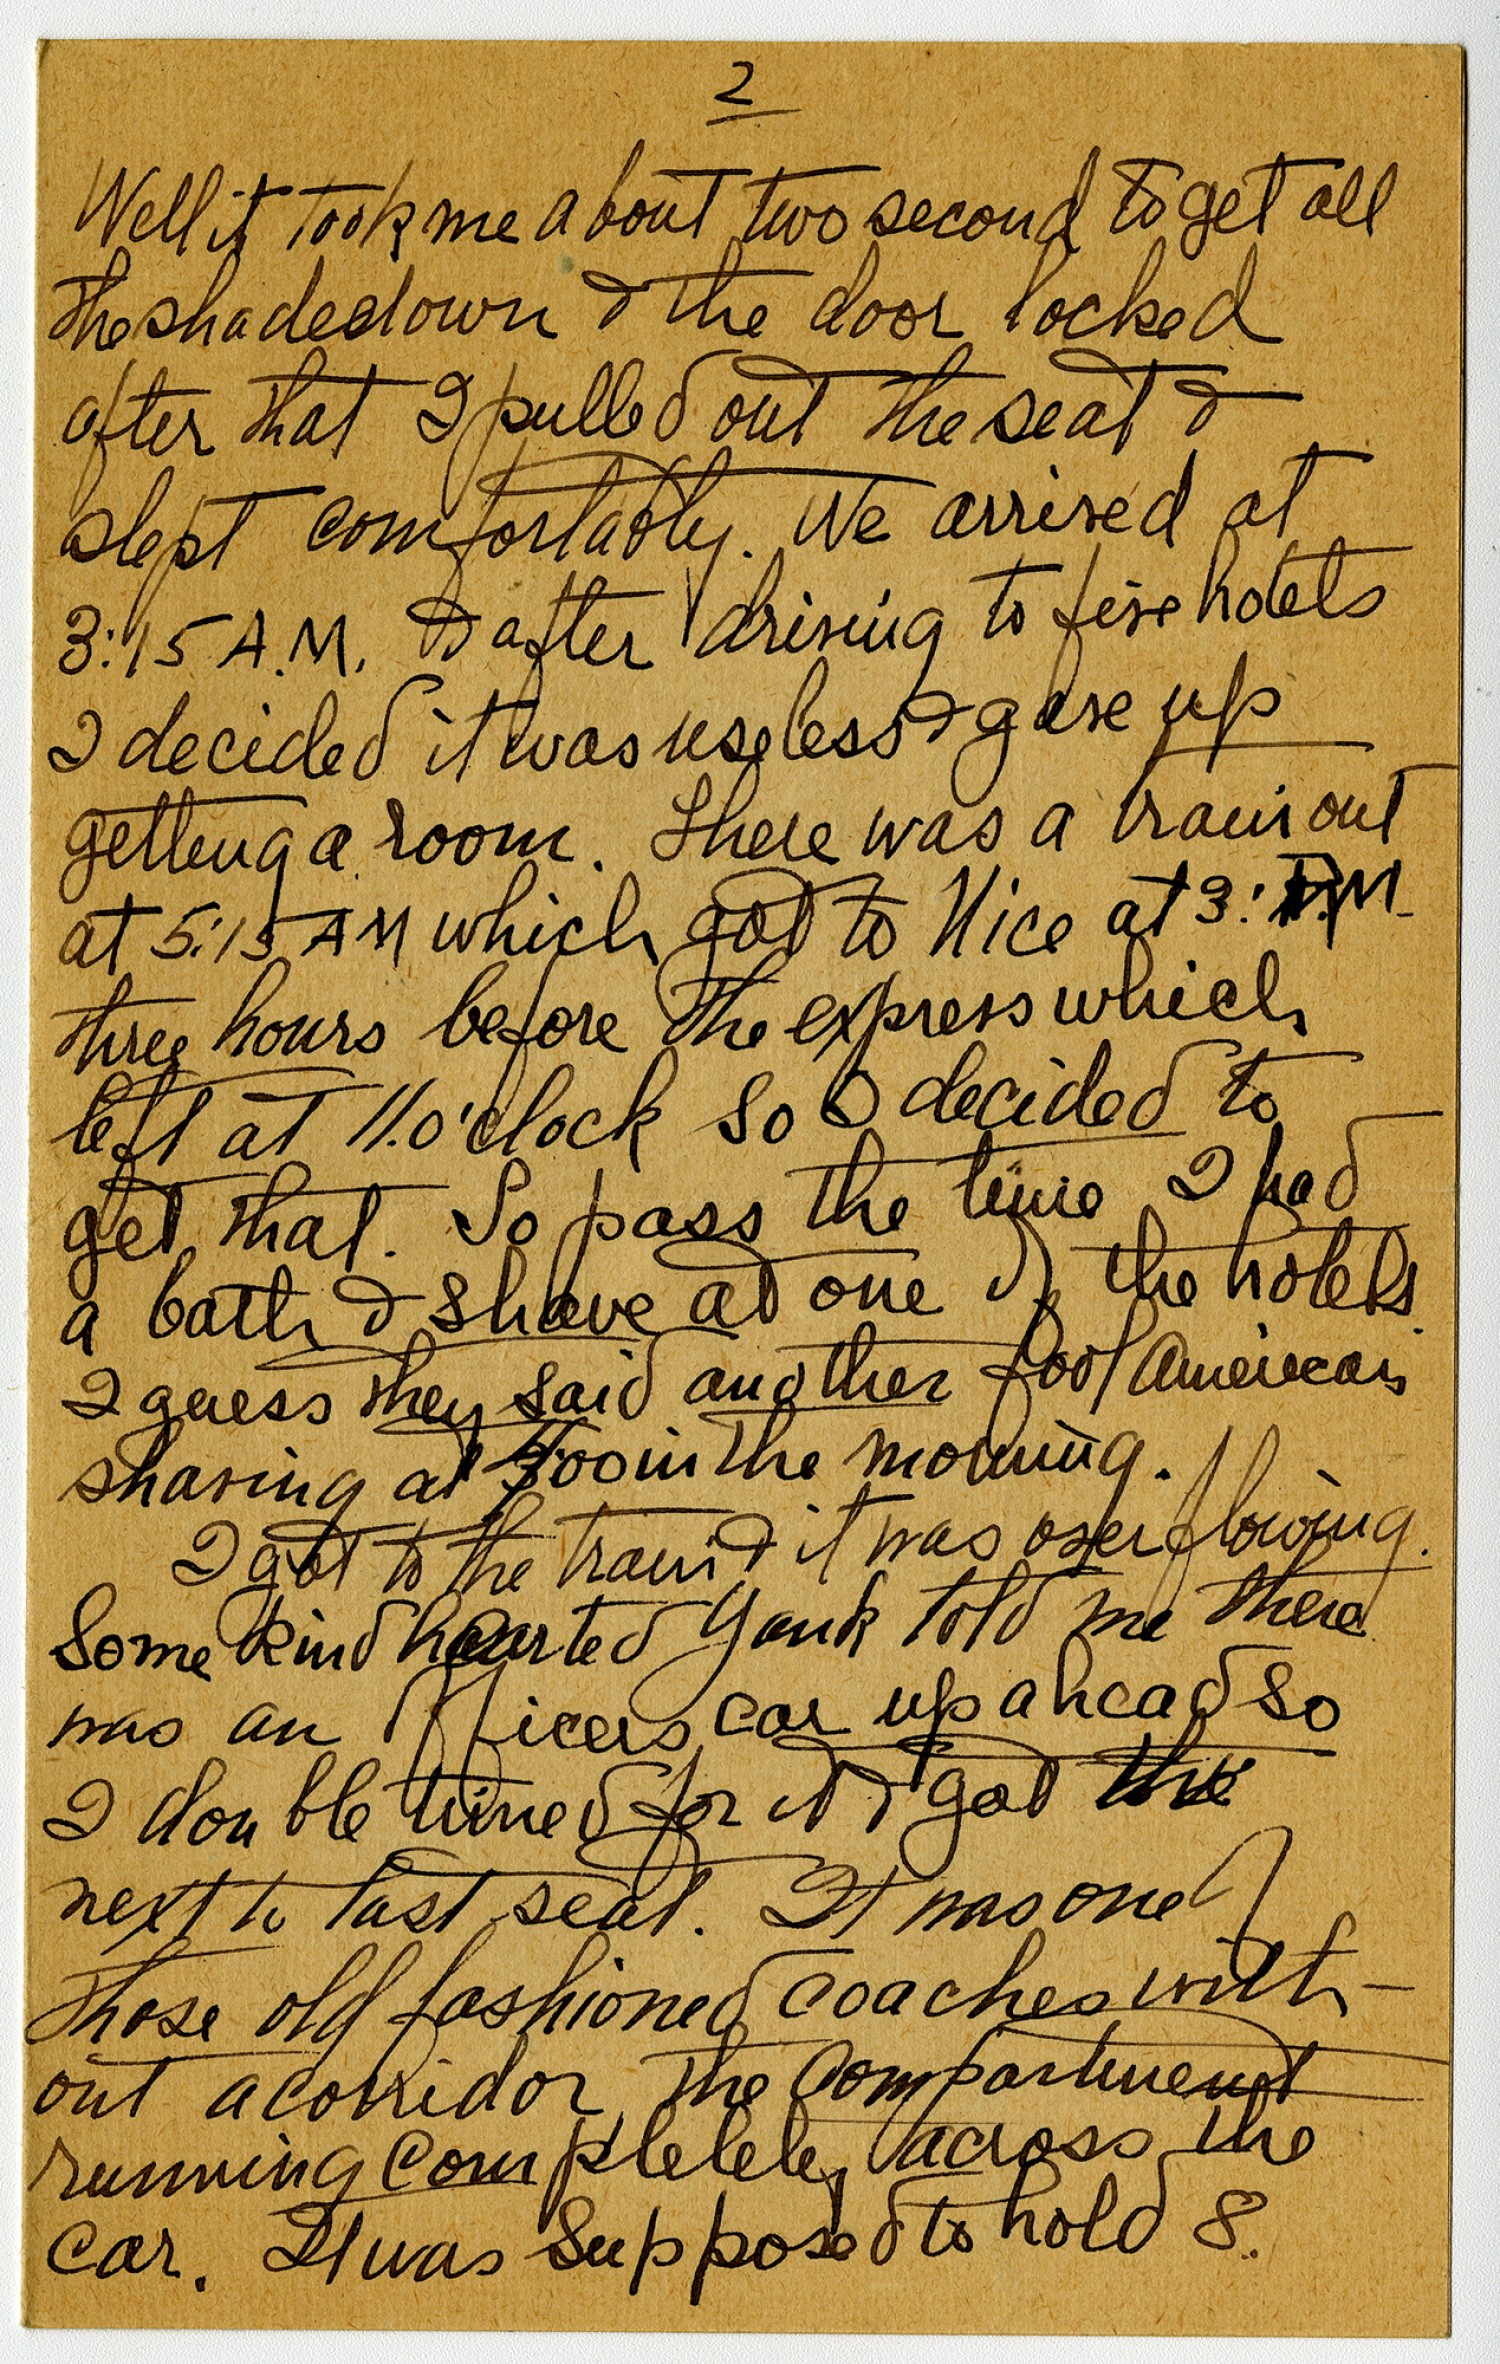 2
Well it took me about two second to get all
the shades down & the door locked
after that I pulled out the seat &
slept comfortably. We arrived at
3:15 A.M. & after driving to five hotels
I decided it was useless & gave up
getting a room. There was a train out
at 5:15 AM which got to Nice at 3: P.M.
three hours before the express which
left at 11 o'clock so I decided to
get that. So pass the time I had
a bath & shave at one of the hotels.
I guess they said another fool American
shaving at 4:00 in the morning.
I got to the train & it was overflowing.
Some kind hearted Yank told me there
was an officers car up ahead so
I double timed for it & got the
next to last seat. It was one of
those old fashioned coaches with-
out a corridor, the compartment
running completely across the
car. It was supposed to hold 8.